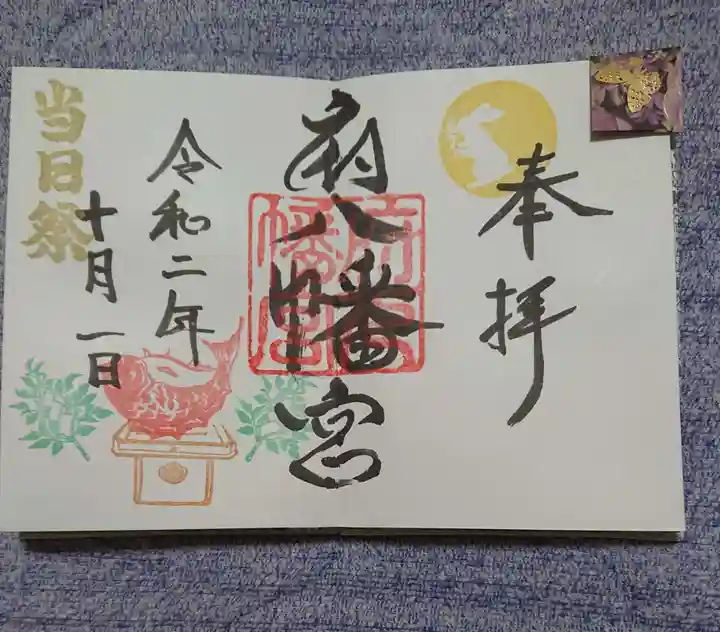 奉拝
府八幡宮
府八幡宮
令和二年
十月一日
当日祭